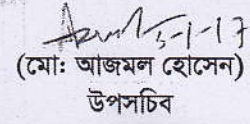 5-1-17
(মো: আজমল হোসেন)
উপসচিব